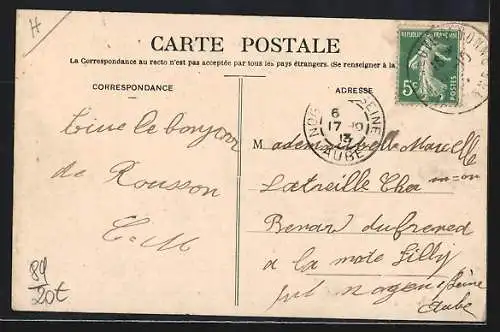 H
CARTE POSTALE
La Correspondance au recto n'est pas acceptée par tous les pays étrangers. (Se renseigner à la
CORRESPONDANCE
ADRESSE
REPUBLIQUE FRANÇAISE
5c
POSTES
NOG SEINE
6
17 9
13
AUBE
le bonjour
de Rousson
C. M
Mademoiselle Marcelle
Latreille Chez
Benard
a la mote Tilly
Nogent s Seine
Aube
89
20t